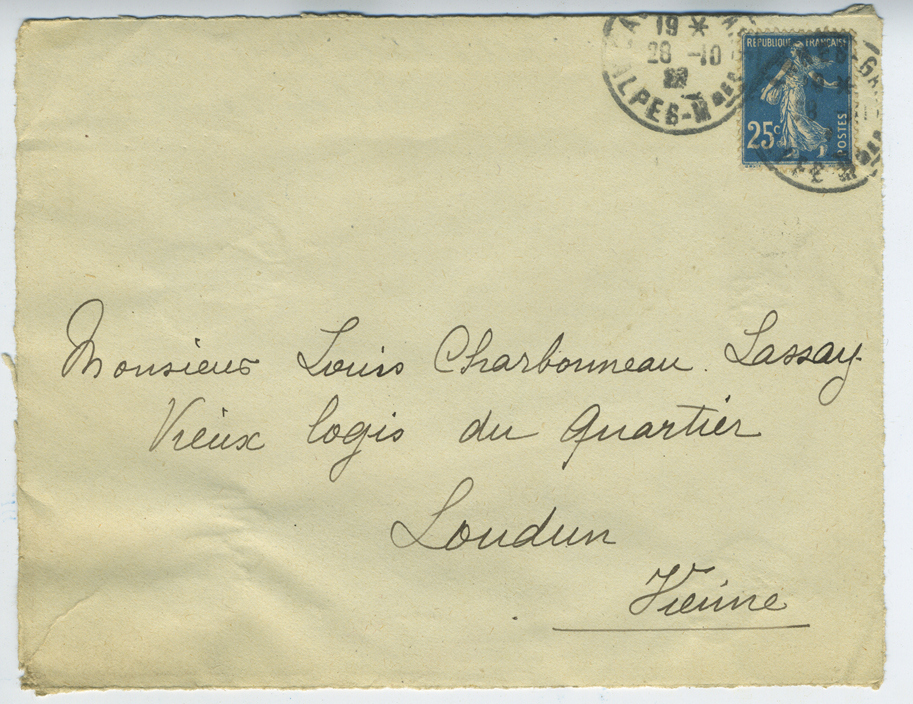 19 *
28 -10
ALPES-Mmes
REPUBLIQUE FRANÇAISE
25c
POSTES
Monsieur Louis Charbonneau. Lassay.
Vieux logis du Quartier
Loudun
Vienne